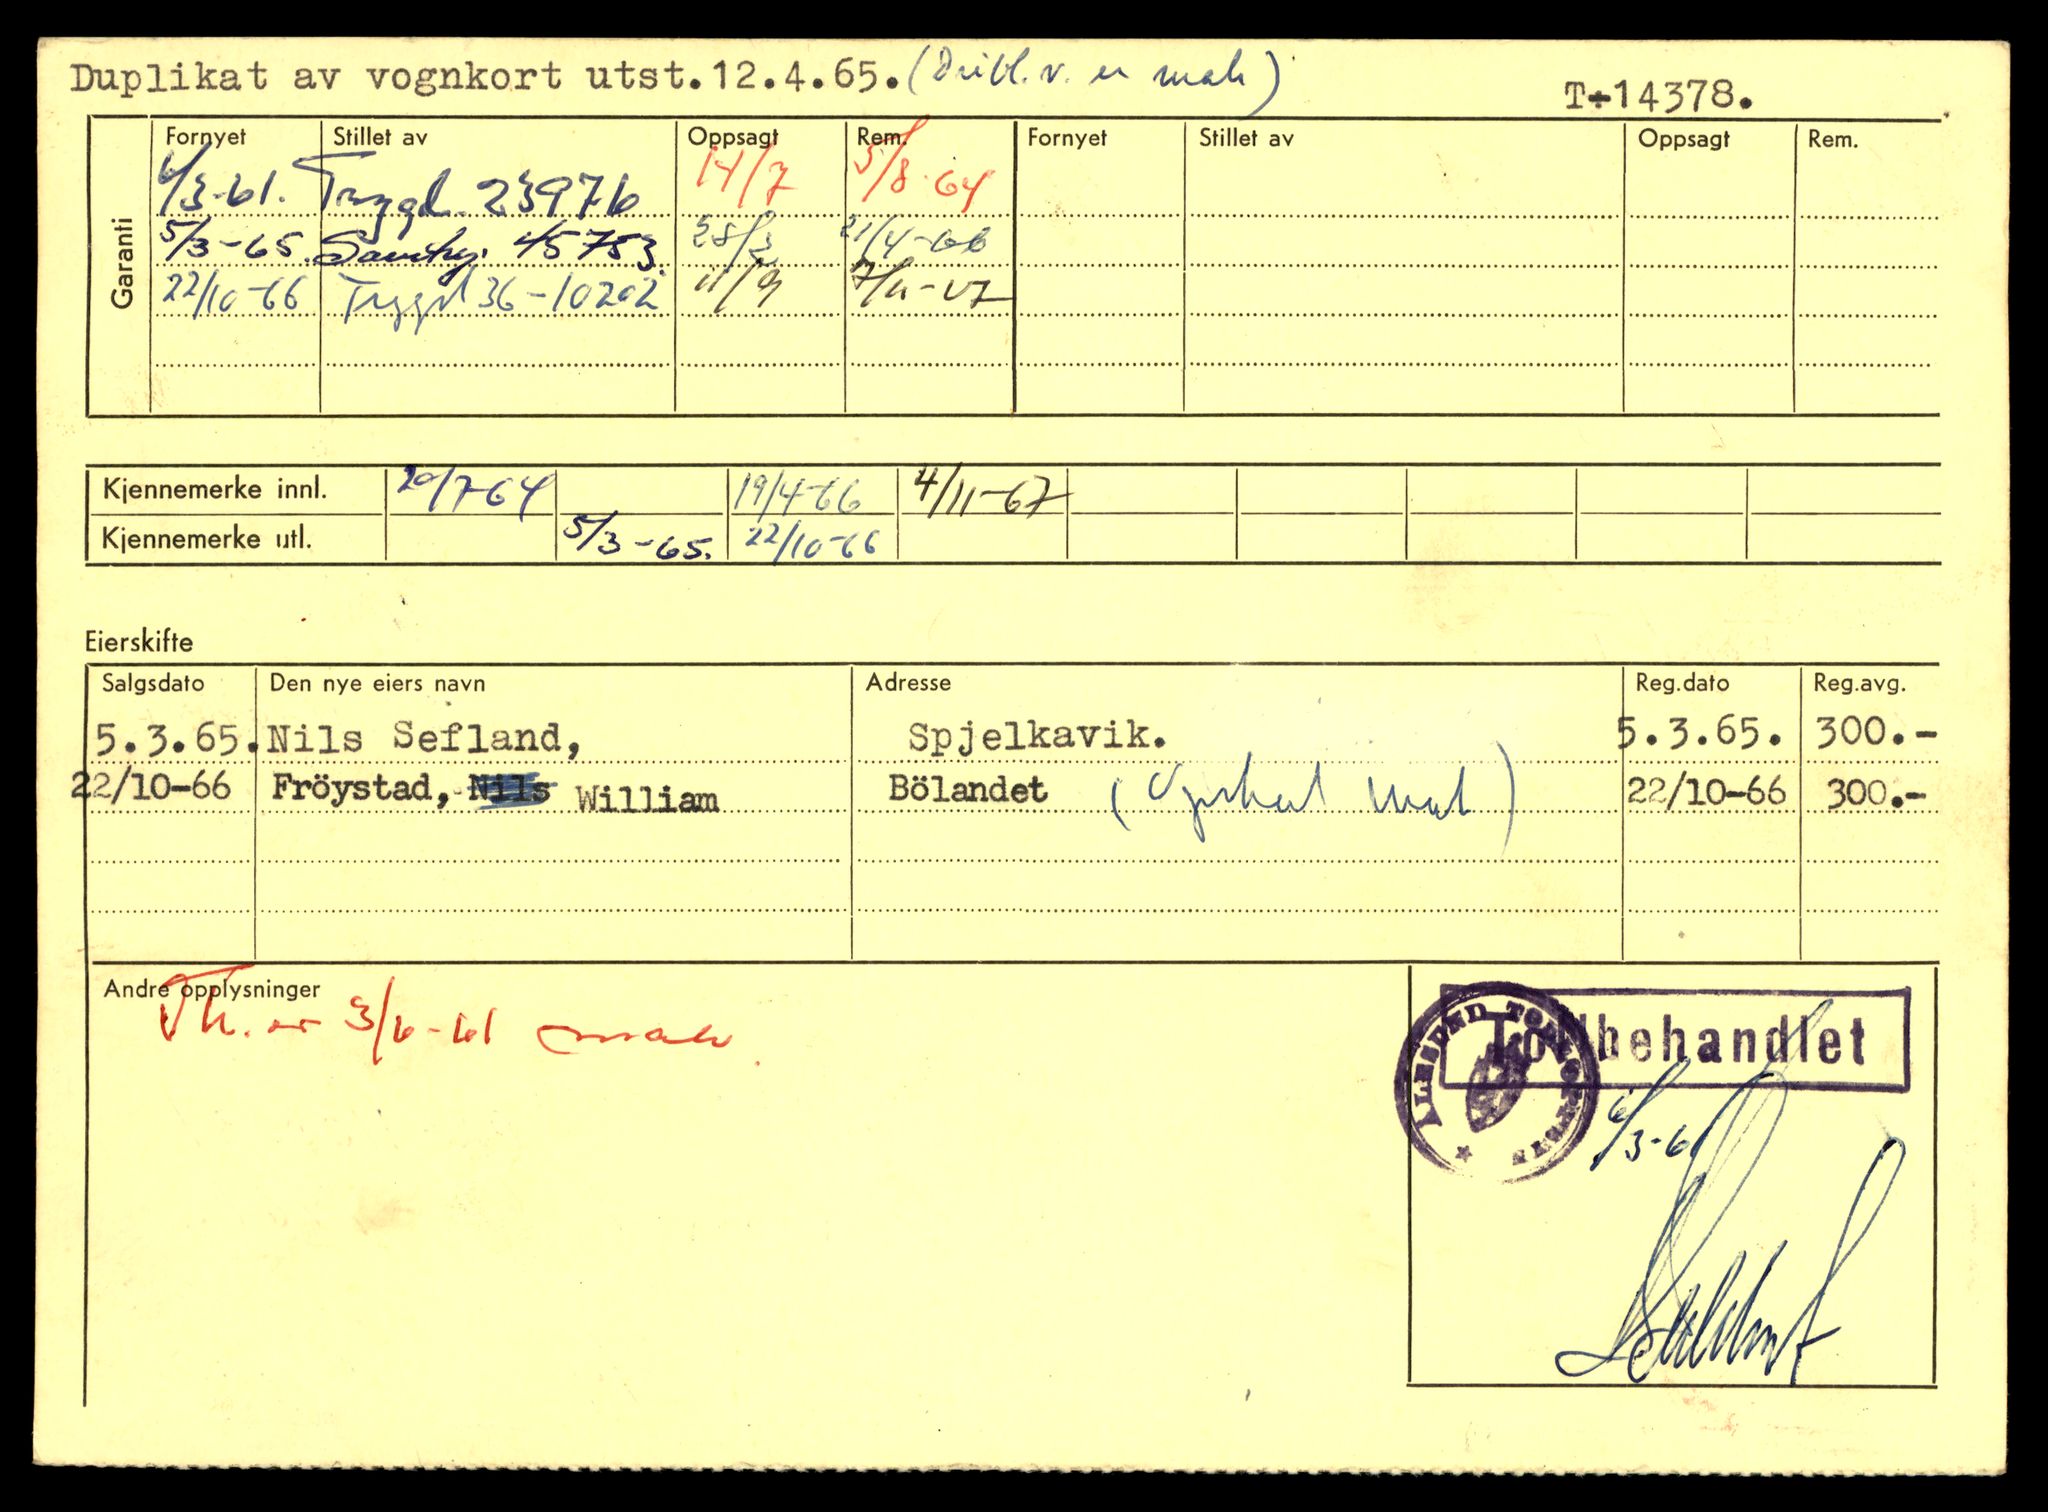 Duplikat av vognkort utst.12.4.65.
T-14378.
Garanti
Fornyet Stillet av Oppsagt Rem. Fornyet Stillet av Oppsagt Rem.
6/3-61. Trygd. 23976 14/7 5/8-64
5/3-65. 45753. 28/3 21/4-66
22/10-66 Trygd 36-10202 11/9 7/11-67
Kjennemerke innl. 20/7-64 19/4-66 4/11-67
Kjennemerke utl. 5/3-65. 22/10-66
Eierskifte
Salgsdato Den nye eiers navn Adresse Reg.dato Reg.avg.
5.3.65. Nils Sefland, Spjelkavik. 5.3.65. 300.-
22/10-66 Fröystad, Nils William Bölandet 22/10-66 300.-
Andre opplysninger
3/6-61
Tollbehandlet
6/3-61